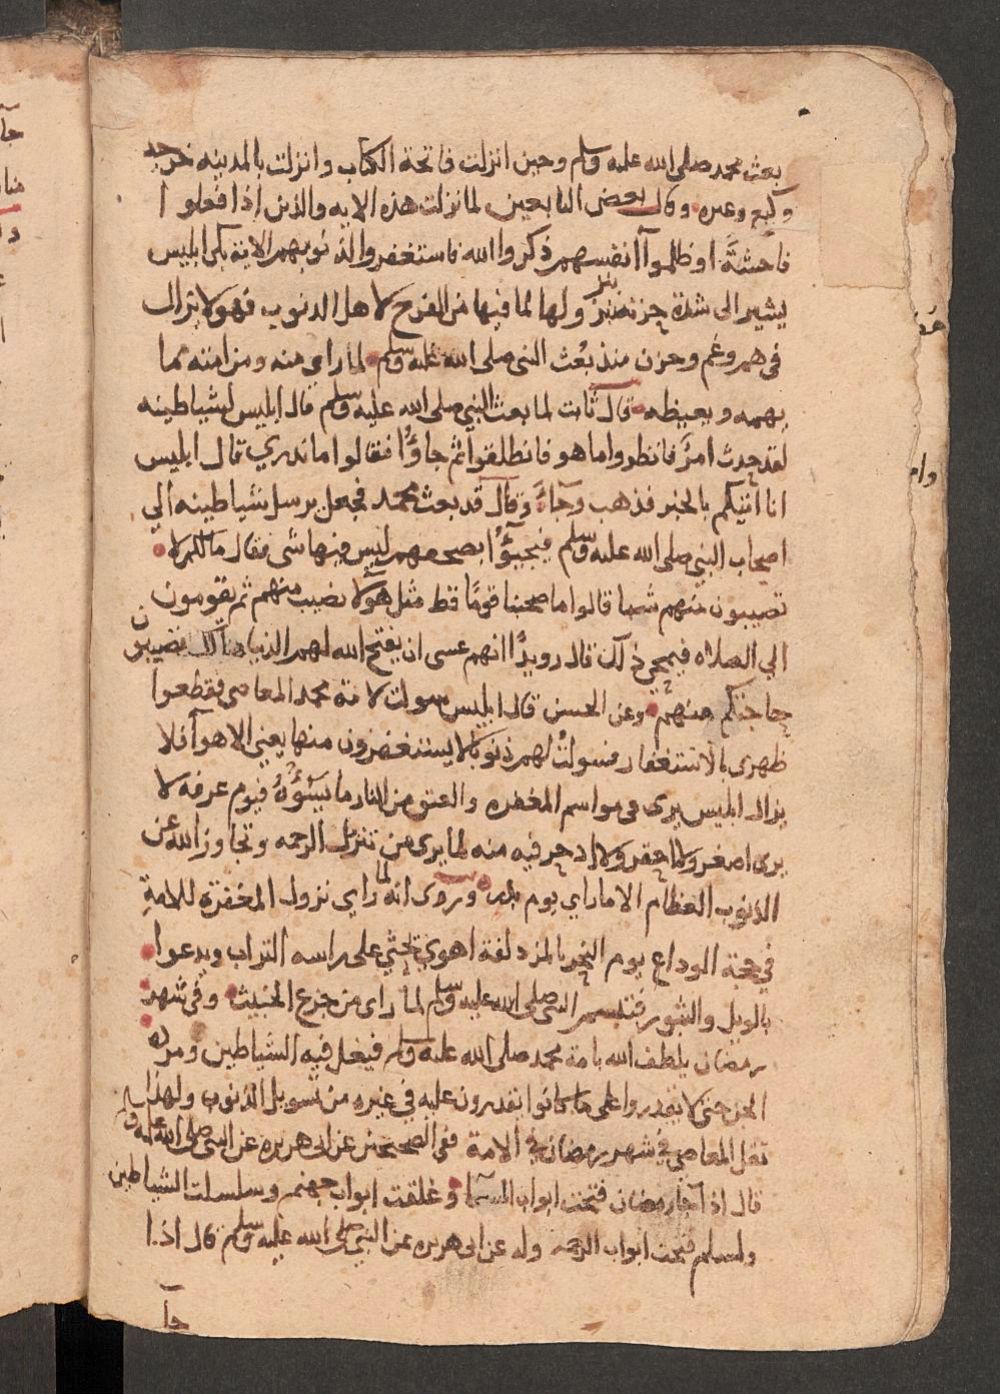 بعث محمد صلى الله عليه وسلم وحين انزلت فاتحة الكتاب وانزلت بالمدينه خرجه
وكيع وغيره وقال بعض التابعين لما نزلت هذه الايه والذين اذا فعلوا
فاحشةً او ظلموا أنفسهم ذكروا الله فاستغفروا لذنوبهم الاية بكى ابليس
يشير الى شدة حزنه بنزولها لما فيها من الفرح لاهل الذنوب فهو لا يزال
في هم وغم وحزن منذ بُعث النبي صلى الله عليه وسلم لما راى منه ومن امته مما
يهمه ويغيظه قال ثابت لما بعث النبي صلى الله عليه وسلم قال ابليس لشياطينه
لقد حدث امرٌ فانظروا ما هو فانطلقوا ثم جاؤا فقالوا ما ندري قال ابليس
انا اتيكم بالخبر فذهب وجاءَ وقال قد بعث محمد فجعل يرسل شياطينه الي
اصحاب النبي صلى الله عليه وسلم فيجيؤا بصحفهم ليس فيها شي فقال ما لكم لا
تصيبون منهم شيا قالوا ما صحبنا قومًا قط مثل هؤلا نصيب منهم ثم يقومون
الي الصلاه فيمحى ذلك قال رويدًا انهم عسى ان يفتح الله لهم الدنيا هنالك تصيبون
حاجتكم منهم وعن الحسن قال ابليس سولت لامة محمد المعاصي فقطعوا
ظهري بالاستغفار فسولت لهم ذنوبا لا يستغفرون منها يعني الاهوآ فلا
يزال ابليس يرى في مواسم المغفره والعتق من النار ما يسؤُهُ فيوم عرفه لا
يرى اصغر ولا احقر ولا ادحر فيه منه لما يرى من تنزل الرحمه وتجاوز الله عن
الذنوب العظام الا ما راي يوم بدر وروى انه لما راي نزول المغفرة للامةِ
في حجة الوداع يوم النحر بالمزدلفة اهوي يحثي على راسه التراب ويدعوا
بالويل والثبور فتبسم النبي صلى الله عليه وسلم لما راى من جزع الخبيث وفي شهر
رمضان يلطف الله بامة محمد صلى الله عليه وسلم فيغل فيه الشياطين ومردة
الجن حتى لا يقدروا على ما كانوا يقدرون عليه في غيره من تسويل الذنوب ولهذا
تقل المعاصي في شهر رمضان في الامة ففي الصحيحين عن ابي هريره عن النبي صلى الله عليه وسلم
قال اذا جآ رمضان فتحت ابواب السمآ وغلقت ابواب جهنم وسلسلت الشياطين
ولمسلم فتحت ابواب الرحمه وله عن ابى هريره عن النبي صلى الله عليه وسلم قال اذا
جآ